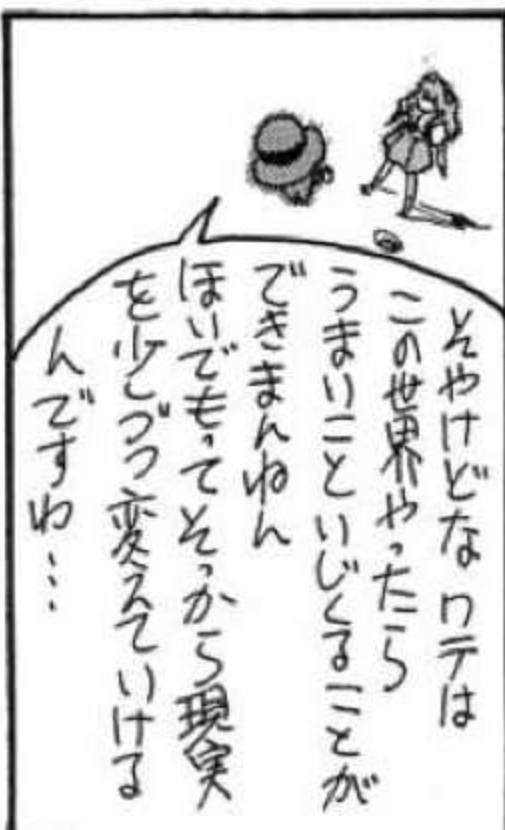 そやけどな ワテは
この世界やったら
うまいこといじくることが
できまんねん
ほいでもってそっから現実
を少しづつ変えていける
んですわ…